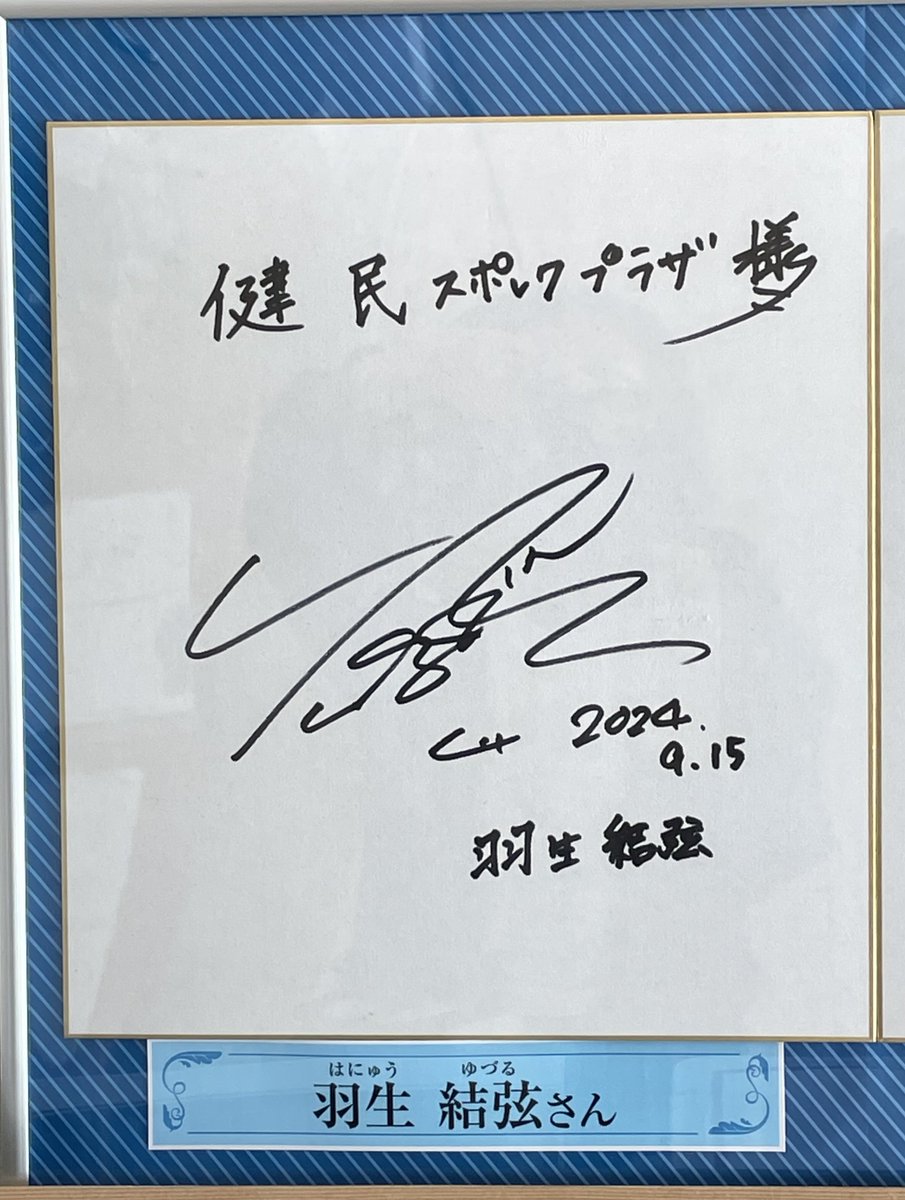 健民スポレクプラザ様
2024.
9.15
羽生結弦
はにゅう ゆづる
羽生 結弦さん